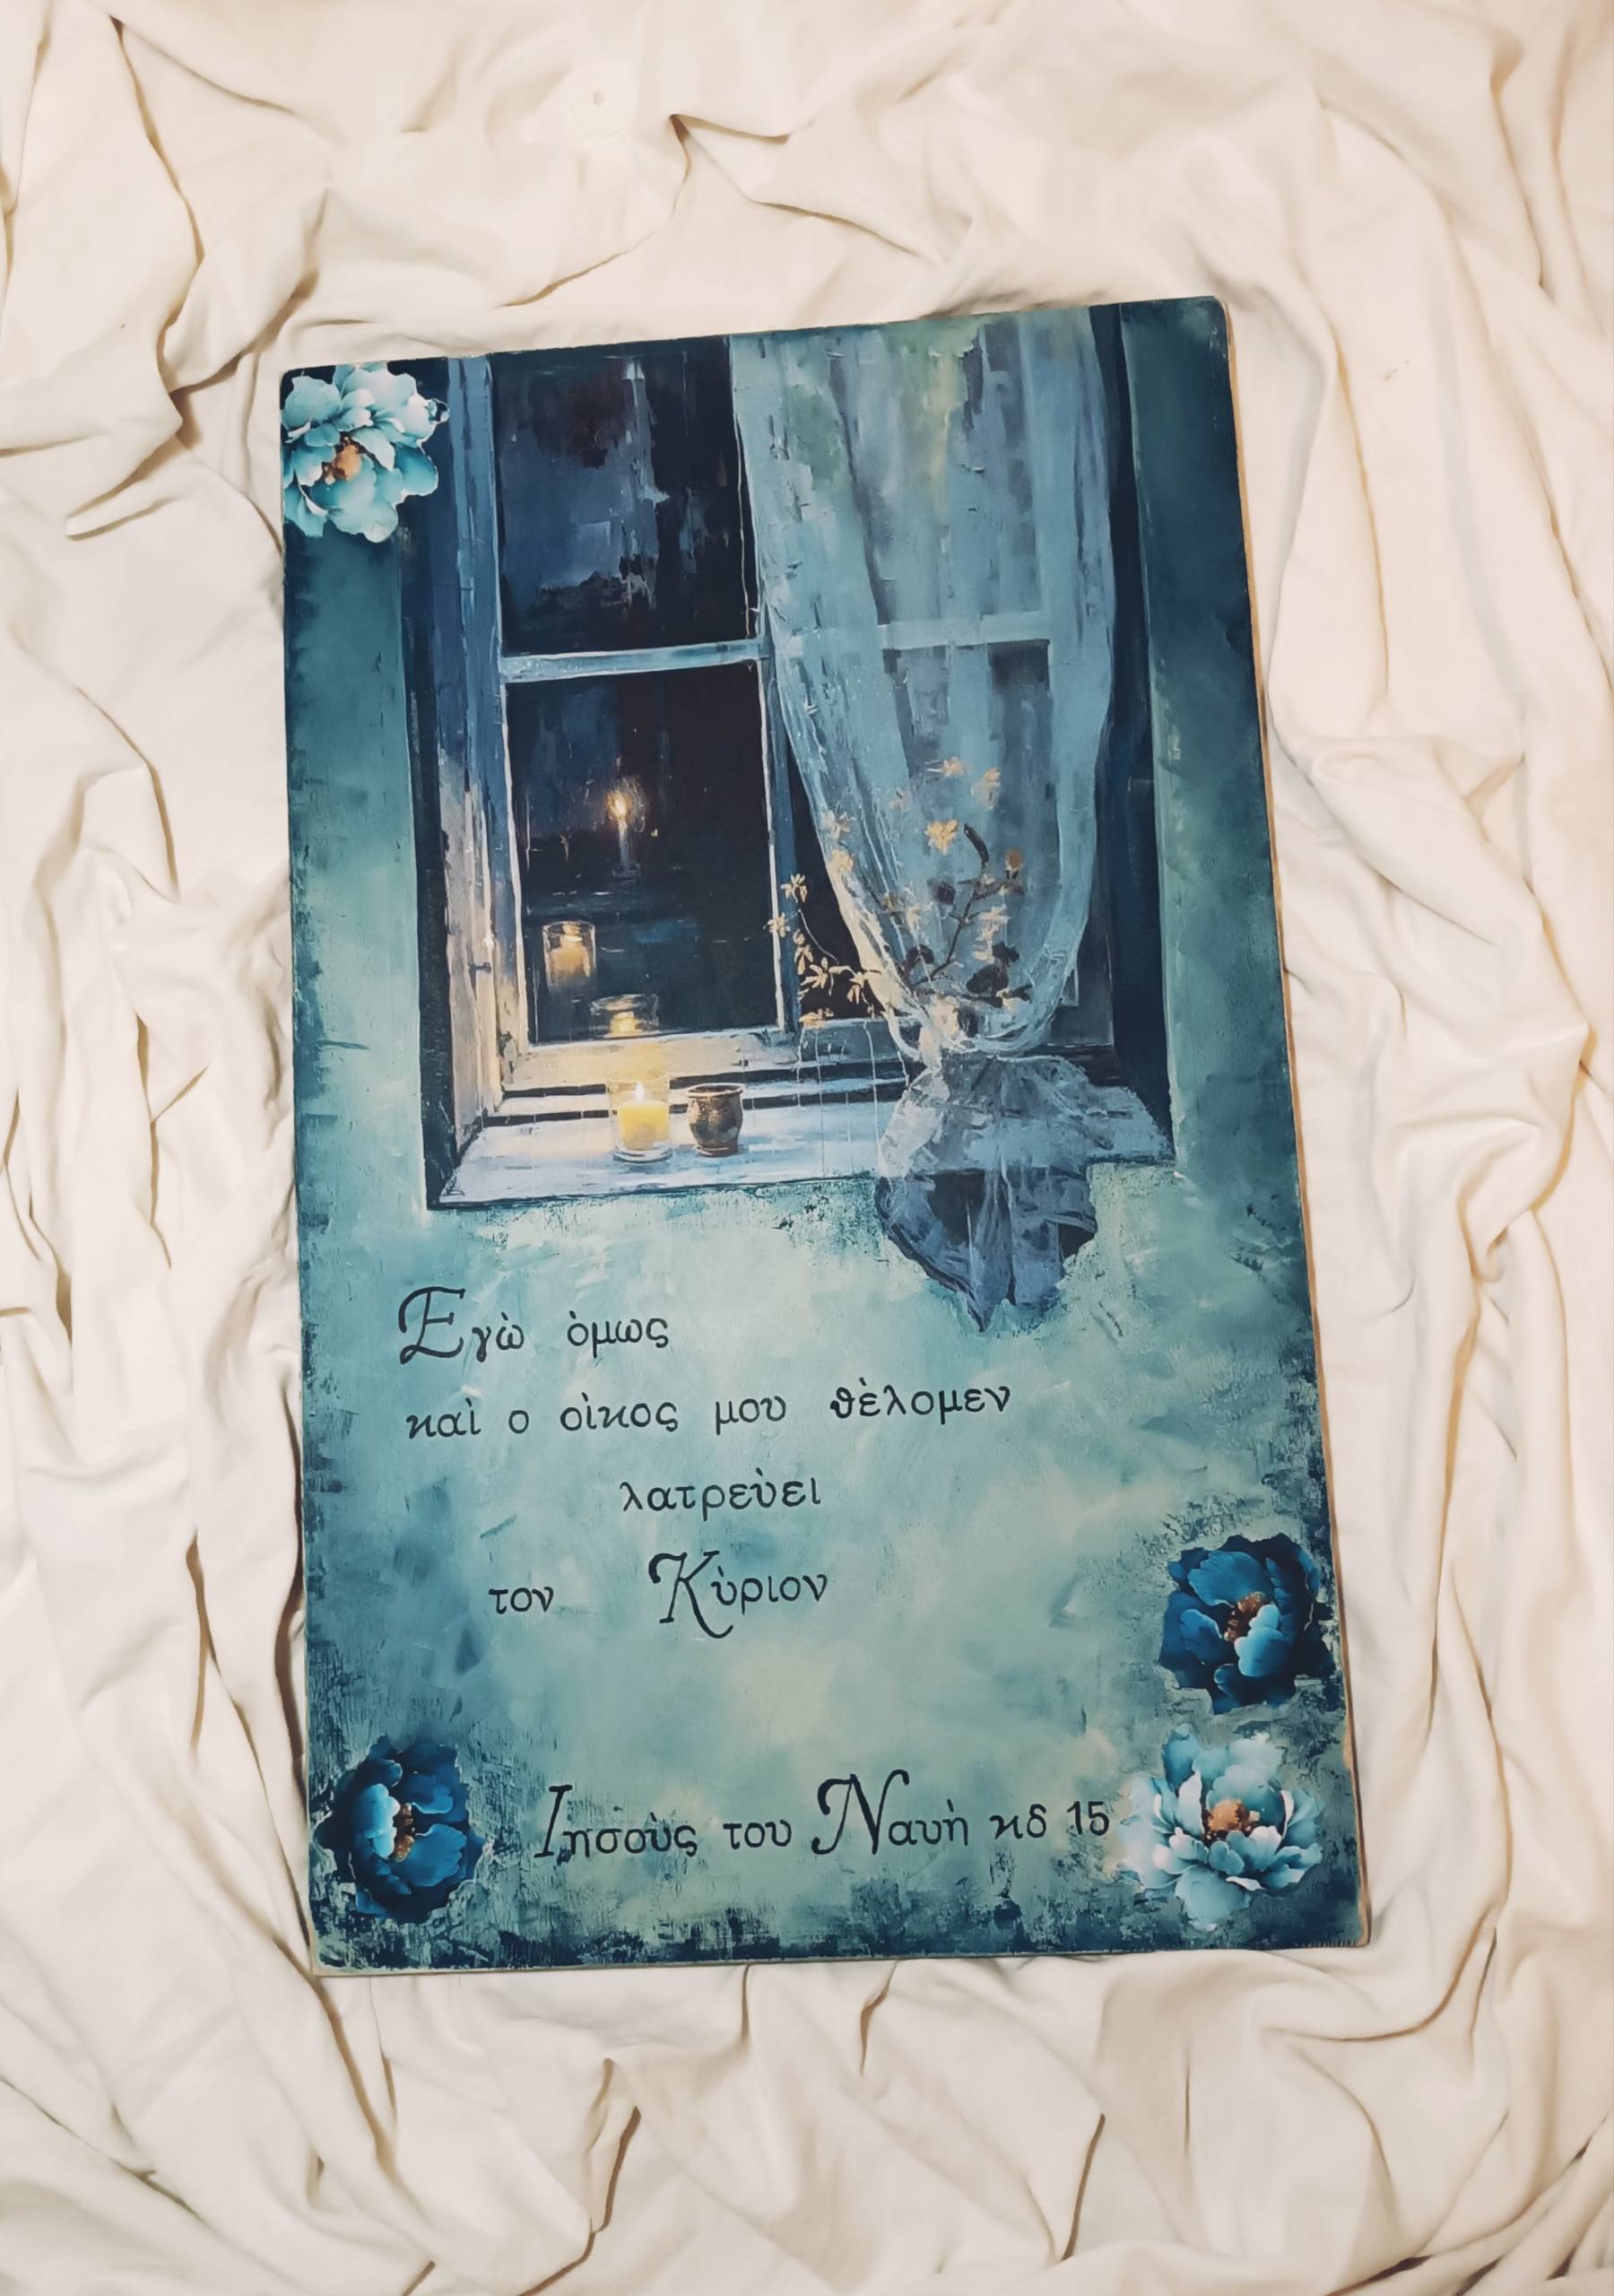 Εγὼ ὸμως
καὶ ο οὶκος μου θὲλομεν
λατρεὺει
τον Κὺριον
Ιησοὺς του Ναυὴ κδ 15